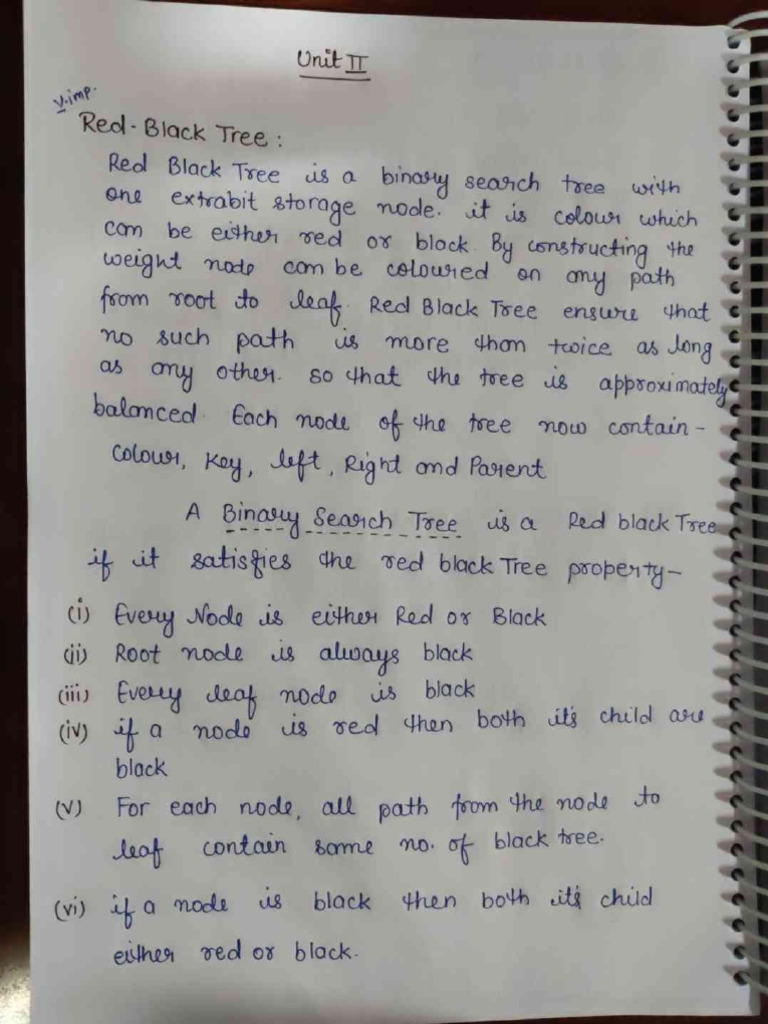 Unit II
V.imp.
Red-Black Tree:
Red Black Tree is a binary search tree with
one extrabit storage node. it is colour which
can be either red or black. By constructing the
weight node can be coloured on any path
from root to leaf. Red Black Tree ensure that
no such path is more than twice as long
as any other. so that the tree is approximately
balanced. Each node of the tree now contain-
colour, Key, left, Right and Parent
A Binary Search Tree is a Red black Tree
if it satisfies the red black Tree property-
(i) Every Node is either Red or Black
(ii) Root node is always black
(iii) Every leaf node is black
(iv) if a node is red then both it's child are
black
(v) For each node, all path from the node to
leaf contain same no. of black tree.
(vi) if a node is black then both it's child
either red or black.